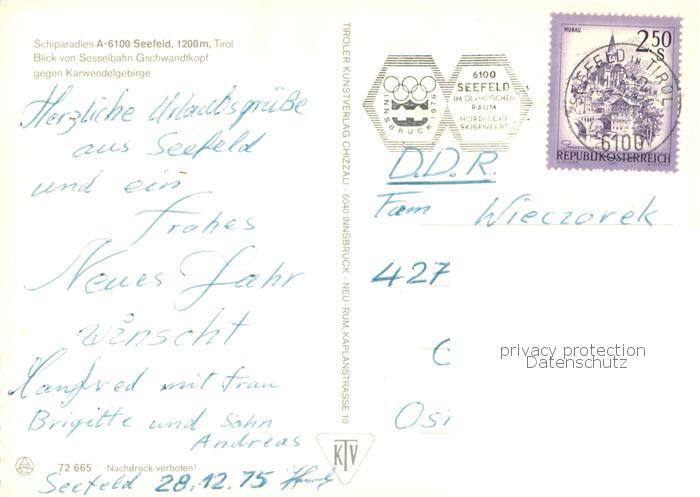 Schiparadies A-6100 Seefeld, 1200 m, Tirol
Blick von Sesselbahn Gschwandtkopf
gegen Karwendelgebirge
Herzliche Urlaubsgrüße
aus Seefeld
und ein
frohes
Neues Jahr
wünscht
Manfred mit Frau
Brigitte und Sohn
Andreas
72 665 Nachdruck verboten!
Seefeld 28.12.75
TIROLER KUNSTVERLAG CHIZZALI · 6040 INNSBRUCK - NEU-RUM, KAPLANSTRASSE 10
KTV
INNSBRUCK 1976
6100
SEEFELD
IM OLYMPISCHEN
RAUM
NORDISCHE
SKIBEWERBE
MURAU
2.50
S
SEEFELD IN TIROL
6100
REPUBLIK ÖSTERREICH
D.D.R.
Fam Wieczorek
427
privacy protection
Datenschutz